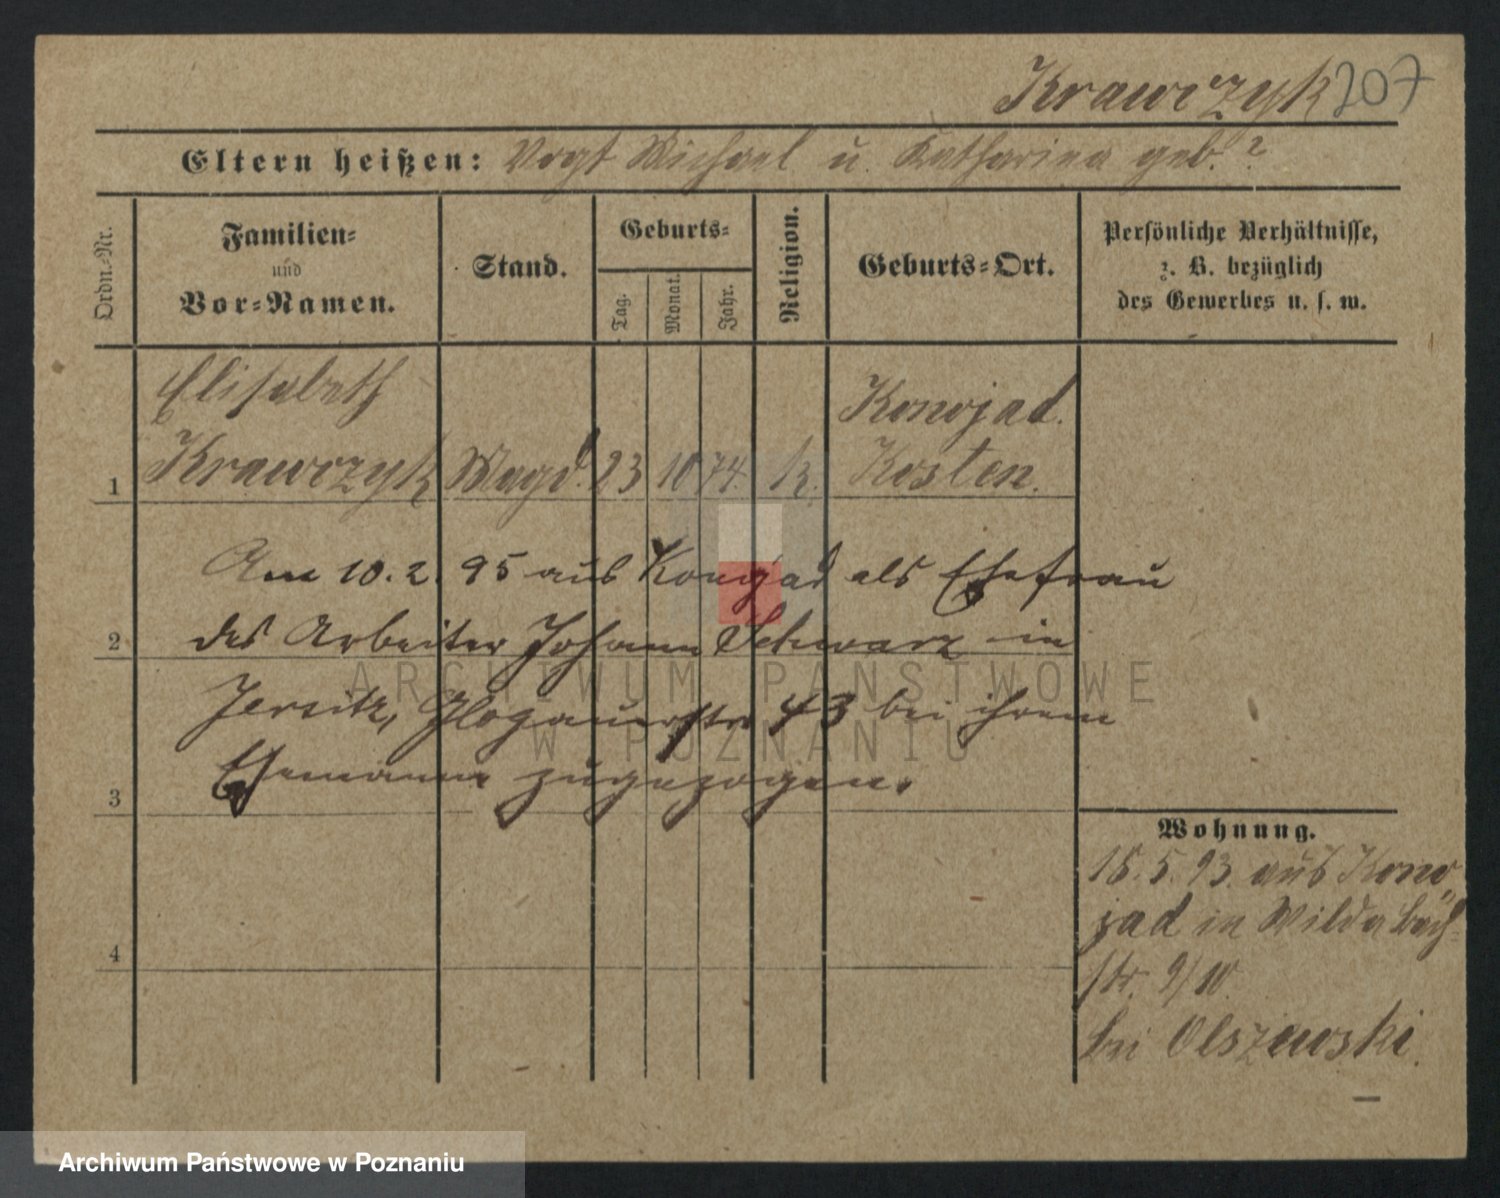 Krawczyk 207
Eltern heißen: Vogt Michael u. Katharina geb. ?
Ordn.-Nr.
Familien-
und
Vor-Namen.
Stand.
Geburts-
Tag.
Monat.
Jahr.
Religion.
Geburts-Ort.
Persönliche Verhältnisse,
z. B. bezüglich
des Gewerbes u. s. w.
Elisabeth
Konojad.
1 Krawczyk Magd. 23 10 74. k. Kosten.
Am 10. 2. 95 aus Konojad als Ehefrau
2 des Arbeiter Johann Schwarz in
Jersitz, Glogauerstr 43 bei ihrem
3 Ehemanne zugezogen.
4
Wohnung.
15. 5. 93. aus Kono
jad in Wilda Bach-
str. 9/10.
bei Olszewski.
ARCHIWUM PAŃSTWOWE
W POZNANIU
Archiwum Państwowe w Poznaniu